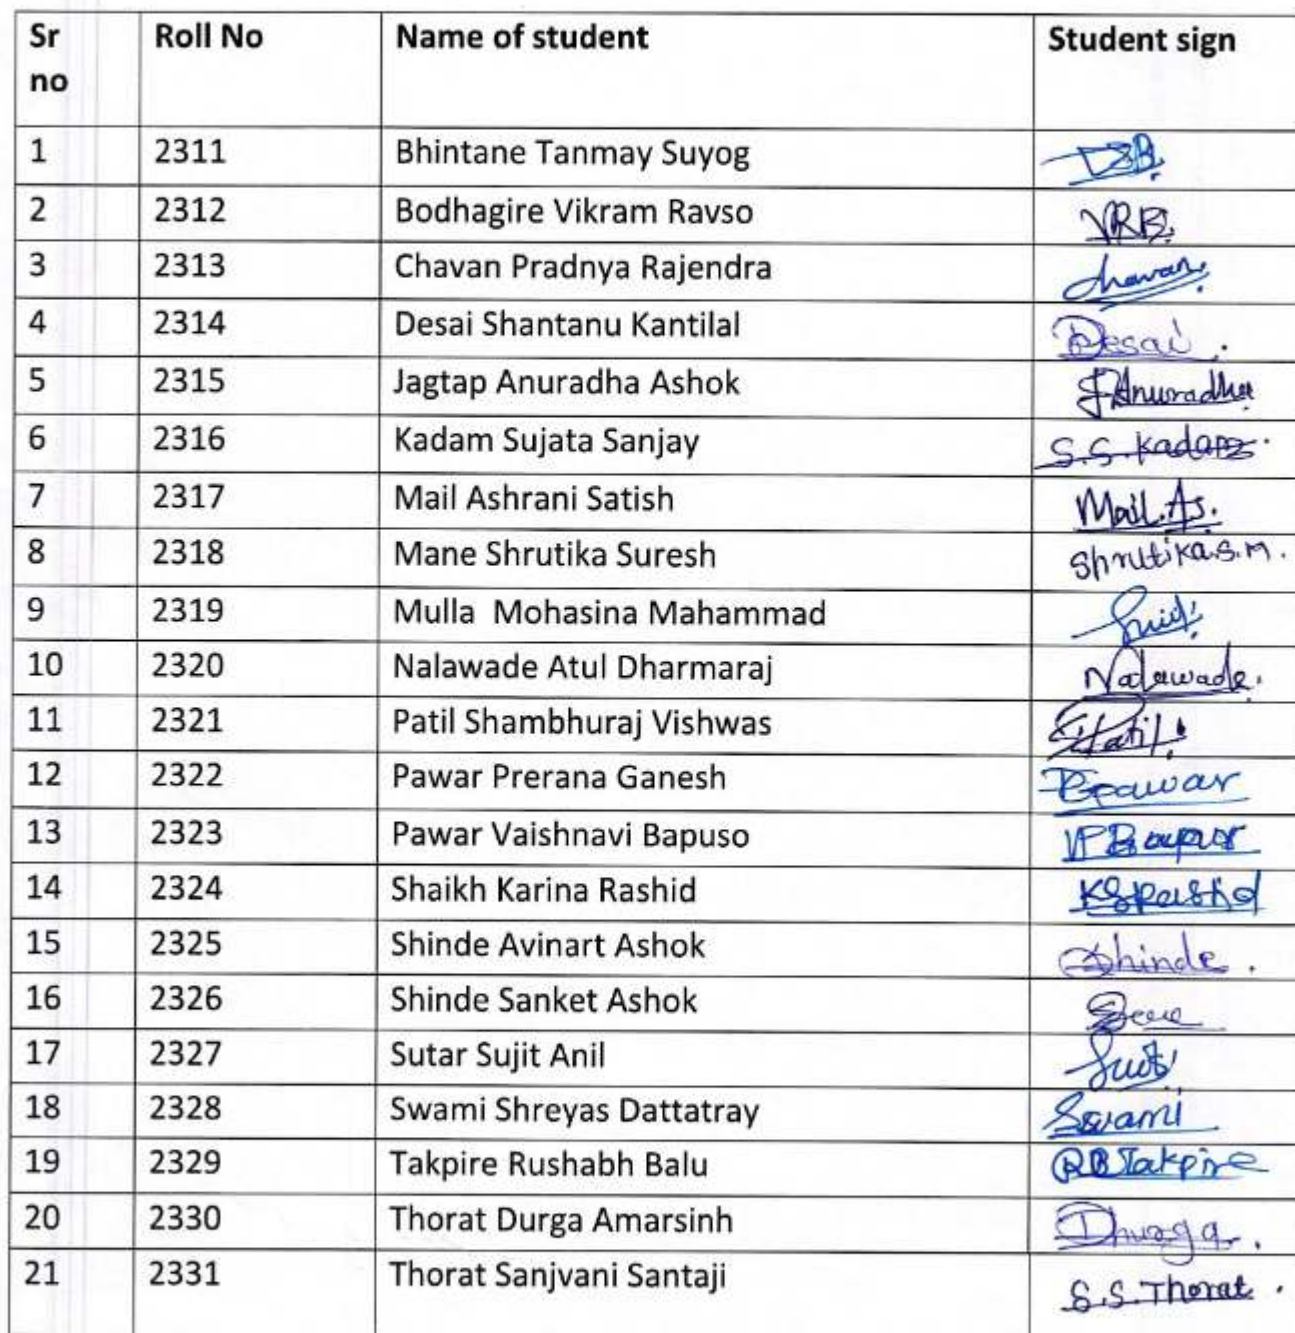 Sr no Roll No Name of student Student sign
1 2311 Bhintane Tanmay Suyog TSB
2 2312 Bodhagire Vikram Ravso VRB.
3 2313 Chavan Pradnya Rajendra Chavan.
4 2314 Desai Shantanu Kantilal Desai.
5 2315 Jagtap Anuradha Ashok J Anuradha
6 2316 Kadam Sujata Sanjay S.S.Kadam.
7 2317 Mail Ashrani Satish Mail.As.
8 2318 Mane Shrutika Suresh Shrutika.S.M.
9 2319 Mulla Mohasina Mahammad
10 2320 Nalawade Atul Dharmaraj Nalawade.
11 2321 Patil Shambhuraj Vishwas Patil
12 2322 Pawar Prerana Ganesh Pawar
13 2323 Pawar Vaishnavi Bapuso
14 2324 Shaikh Karina Rashid KSRashid
15 2325 Shinde Avinart Ashok Shinde.
16 2326 Shinde Sanket Ashok
17 2327 Sutar Sujit Anil
18 2328 Swami Shreyas Dattatray Swami
19 2329 Takpire Rushabh Balu RBTakpire
20 2330 Thorat Durga Amarsinh Dhurga.
21 2331 Thorat Sanjvani Santaji S.S.Thorat.